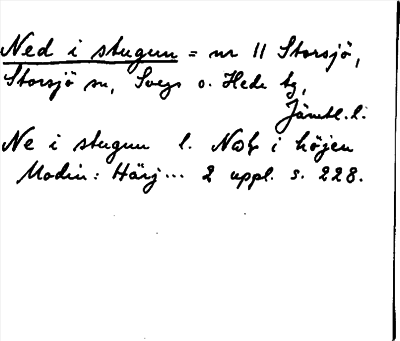 Ned i stugun = nr 11 Storsjö,
Storsjö sn, Svegs o. Hede tg,
Jämtl. l:
Ne i stugun l. i höjen
Modin: Härj... 2 uppl. s. 228.